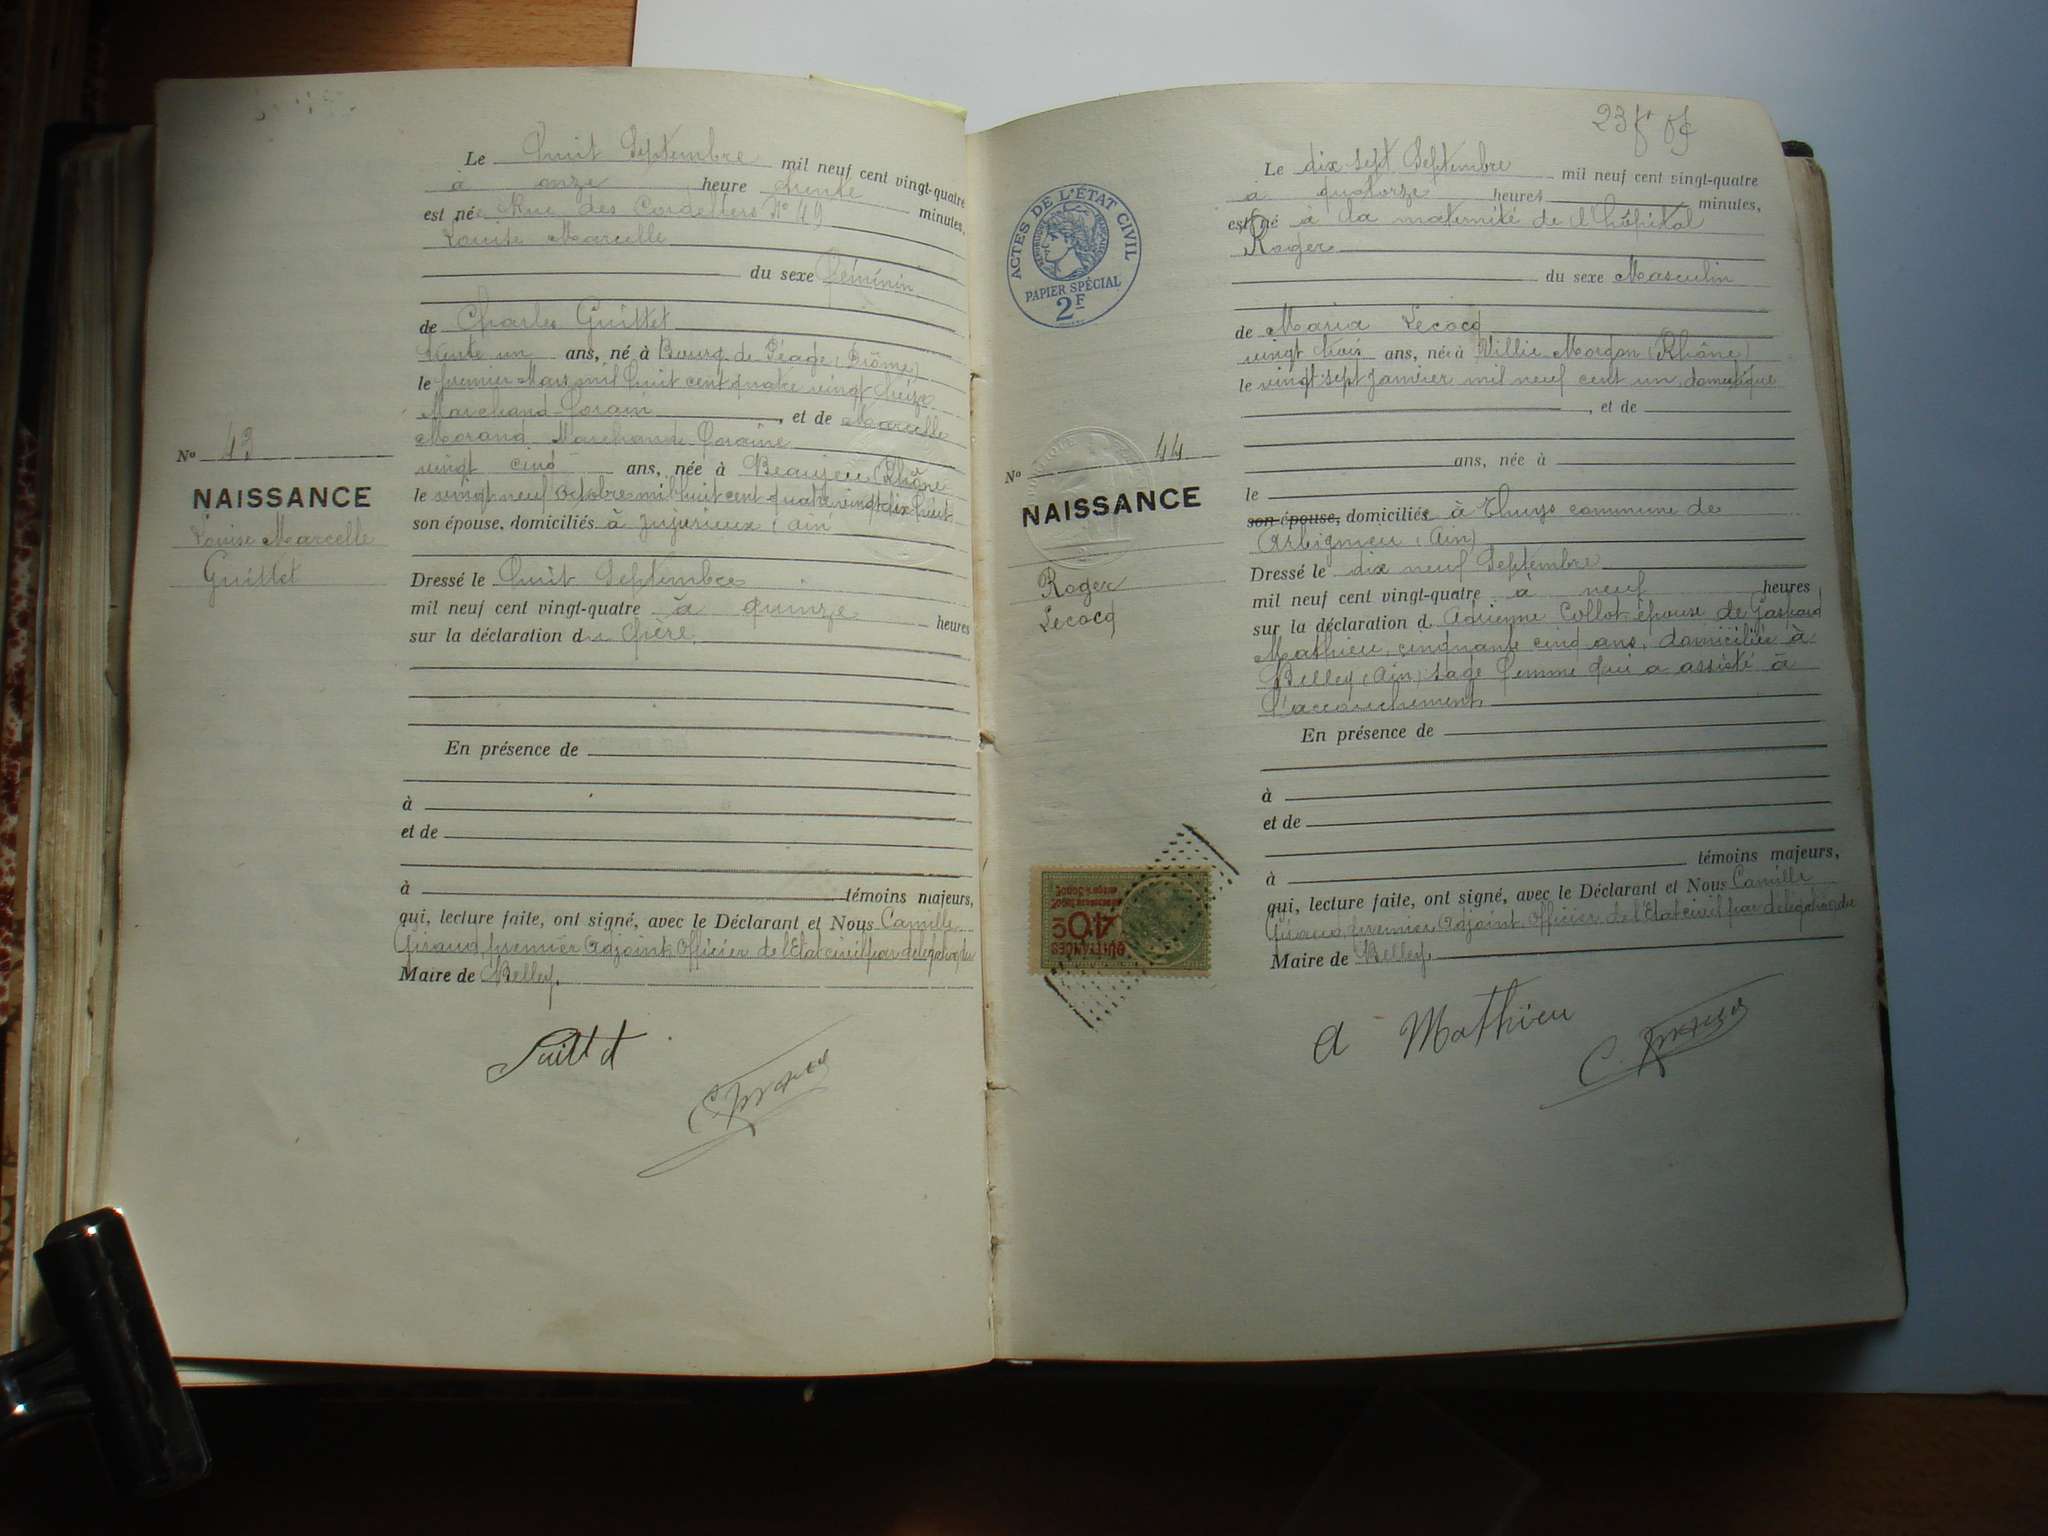 Le huit Septembre mil neuf cent vingt-quatre
à onze heure trente minutes,
est née Rue des Cordeliers N° 49
Louise Marcelle
du sexe féminin
de Charles Guittet
trente un ans, né à Bourg de Péage (Drôme)
le premier Mars mil huit cent quatre vingt treize
Marchand-Forain, et de Marcelle
Morand Marchande Foraine
vingt cinq ans, née à Beaujeu (Rhône
le vingt neuf Octobre mil huit cent quatre vingt dix huit
son épouse, domiciliés à Jujurieux (Ain
Dressé le huit Septembre
mil neuf cent vingt-quatre à quinze heures
sur la déclaration du Père
En présence de
à
et de
à témoins majeurs,
qui, lecture faite, ont signé, avec le Déclarant et Nous Camille
Giraud, premier Adjoint, Officier de l'Etat civil par délégation du
Maire de Belley.
Guittet
N° 43
NAISSANCE
Louise Marcelle
Guittet
23 fr
ACTES DE L'ÉTAT CIVIL
RÉPUBLIQUE FRANÇAISE
PAPIER SPÉCIAL
2F
Le dix sept Septembre mil neuf cent vingt-quatre
à quatorze heures minutes,
est né à la maternité de l'hôpital
Roger
du sexe Masculin
de Maria Lecocq
vingt trois ans, née à Villié Morgon (Rhône)
le vingt sept Janvier mil neuf cent un, domestique
, et de
ans, née à
le
son épouse, domiciliée à Thuys commune de
Arbignieu (Ain)
Dressé le dix neuf Septembre
mil neuf cent vingt-quatre à neuf heures
sur la déclaration d. Adrienne Collot épouse de Gaspard
Mathieu, cinquante cinq ans, domiciliée à
Belley (Ain) sage femme qui a assisté à
l'accouchement
En présence de
à
et de
à témoins majeurs,
qui, lecture faite, ont signé, avec le Déclarant et Nous Camille
Giraud, premier Adjoint, Officier de l'Etat civil par délégation du
Maire de Belley.
A Mathieu
C. Giraud
N° 44
NAISSANCE
Roger
Lecocq
QUITTANCES
40c